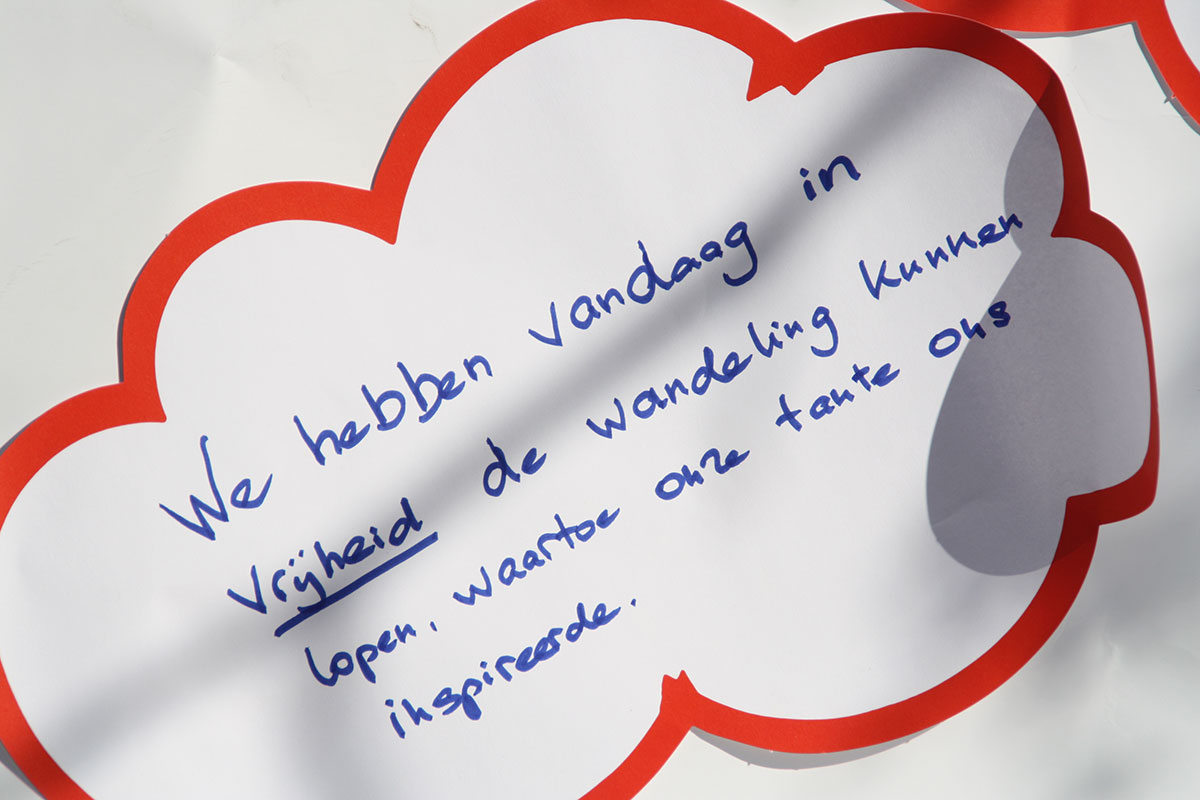 We hebben vandaag in
vrijheid de wandeling kunnen
lopen, waartoe onze tante ons
inspireerde.